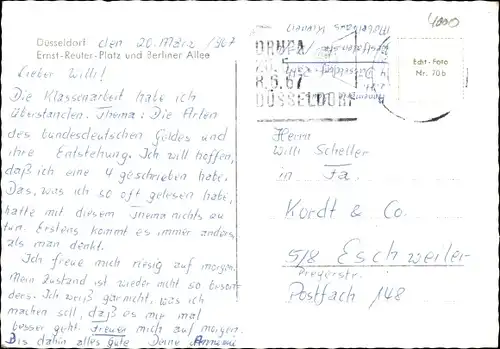 Düsseldorf den 20. März 1967
Ernst-Reuter-Platz und Berliner Allee
Lieber Willi!
Die Klassenarbeit habe ich
überstanden. Thema: Die Arten
des bundesdeutschen Geldes und
ihre Entstehung. Ich will hoffen,
daß ich eine 4 geschrieben habe.
Das, was ich so oft gelesen habe,
hatte mit diesem Thema nichts zu
tun. Erstens kommt es immer anders,
als man denkt.
Ich freue mich riesig auf morgen.
Mein Zustand ist wieder nicht so beson
ders. Ich weiß gar nicht, was ich
machen soll, daß es mir mal
besser geht. Freuen mich auf morgen.
Bis dahin alles Gute Deine
4000
DÜSSELDORF
Echt-Foto
Nr. 70b
Herrn
Willi Scheller
in Fa.
Kordt & Co.
518 Eschweiler
Postfach 148